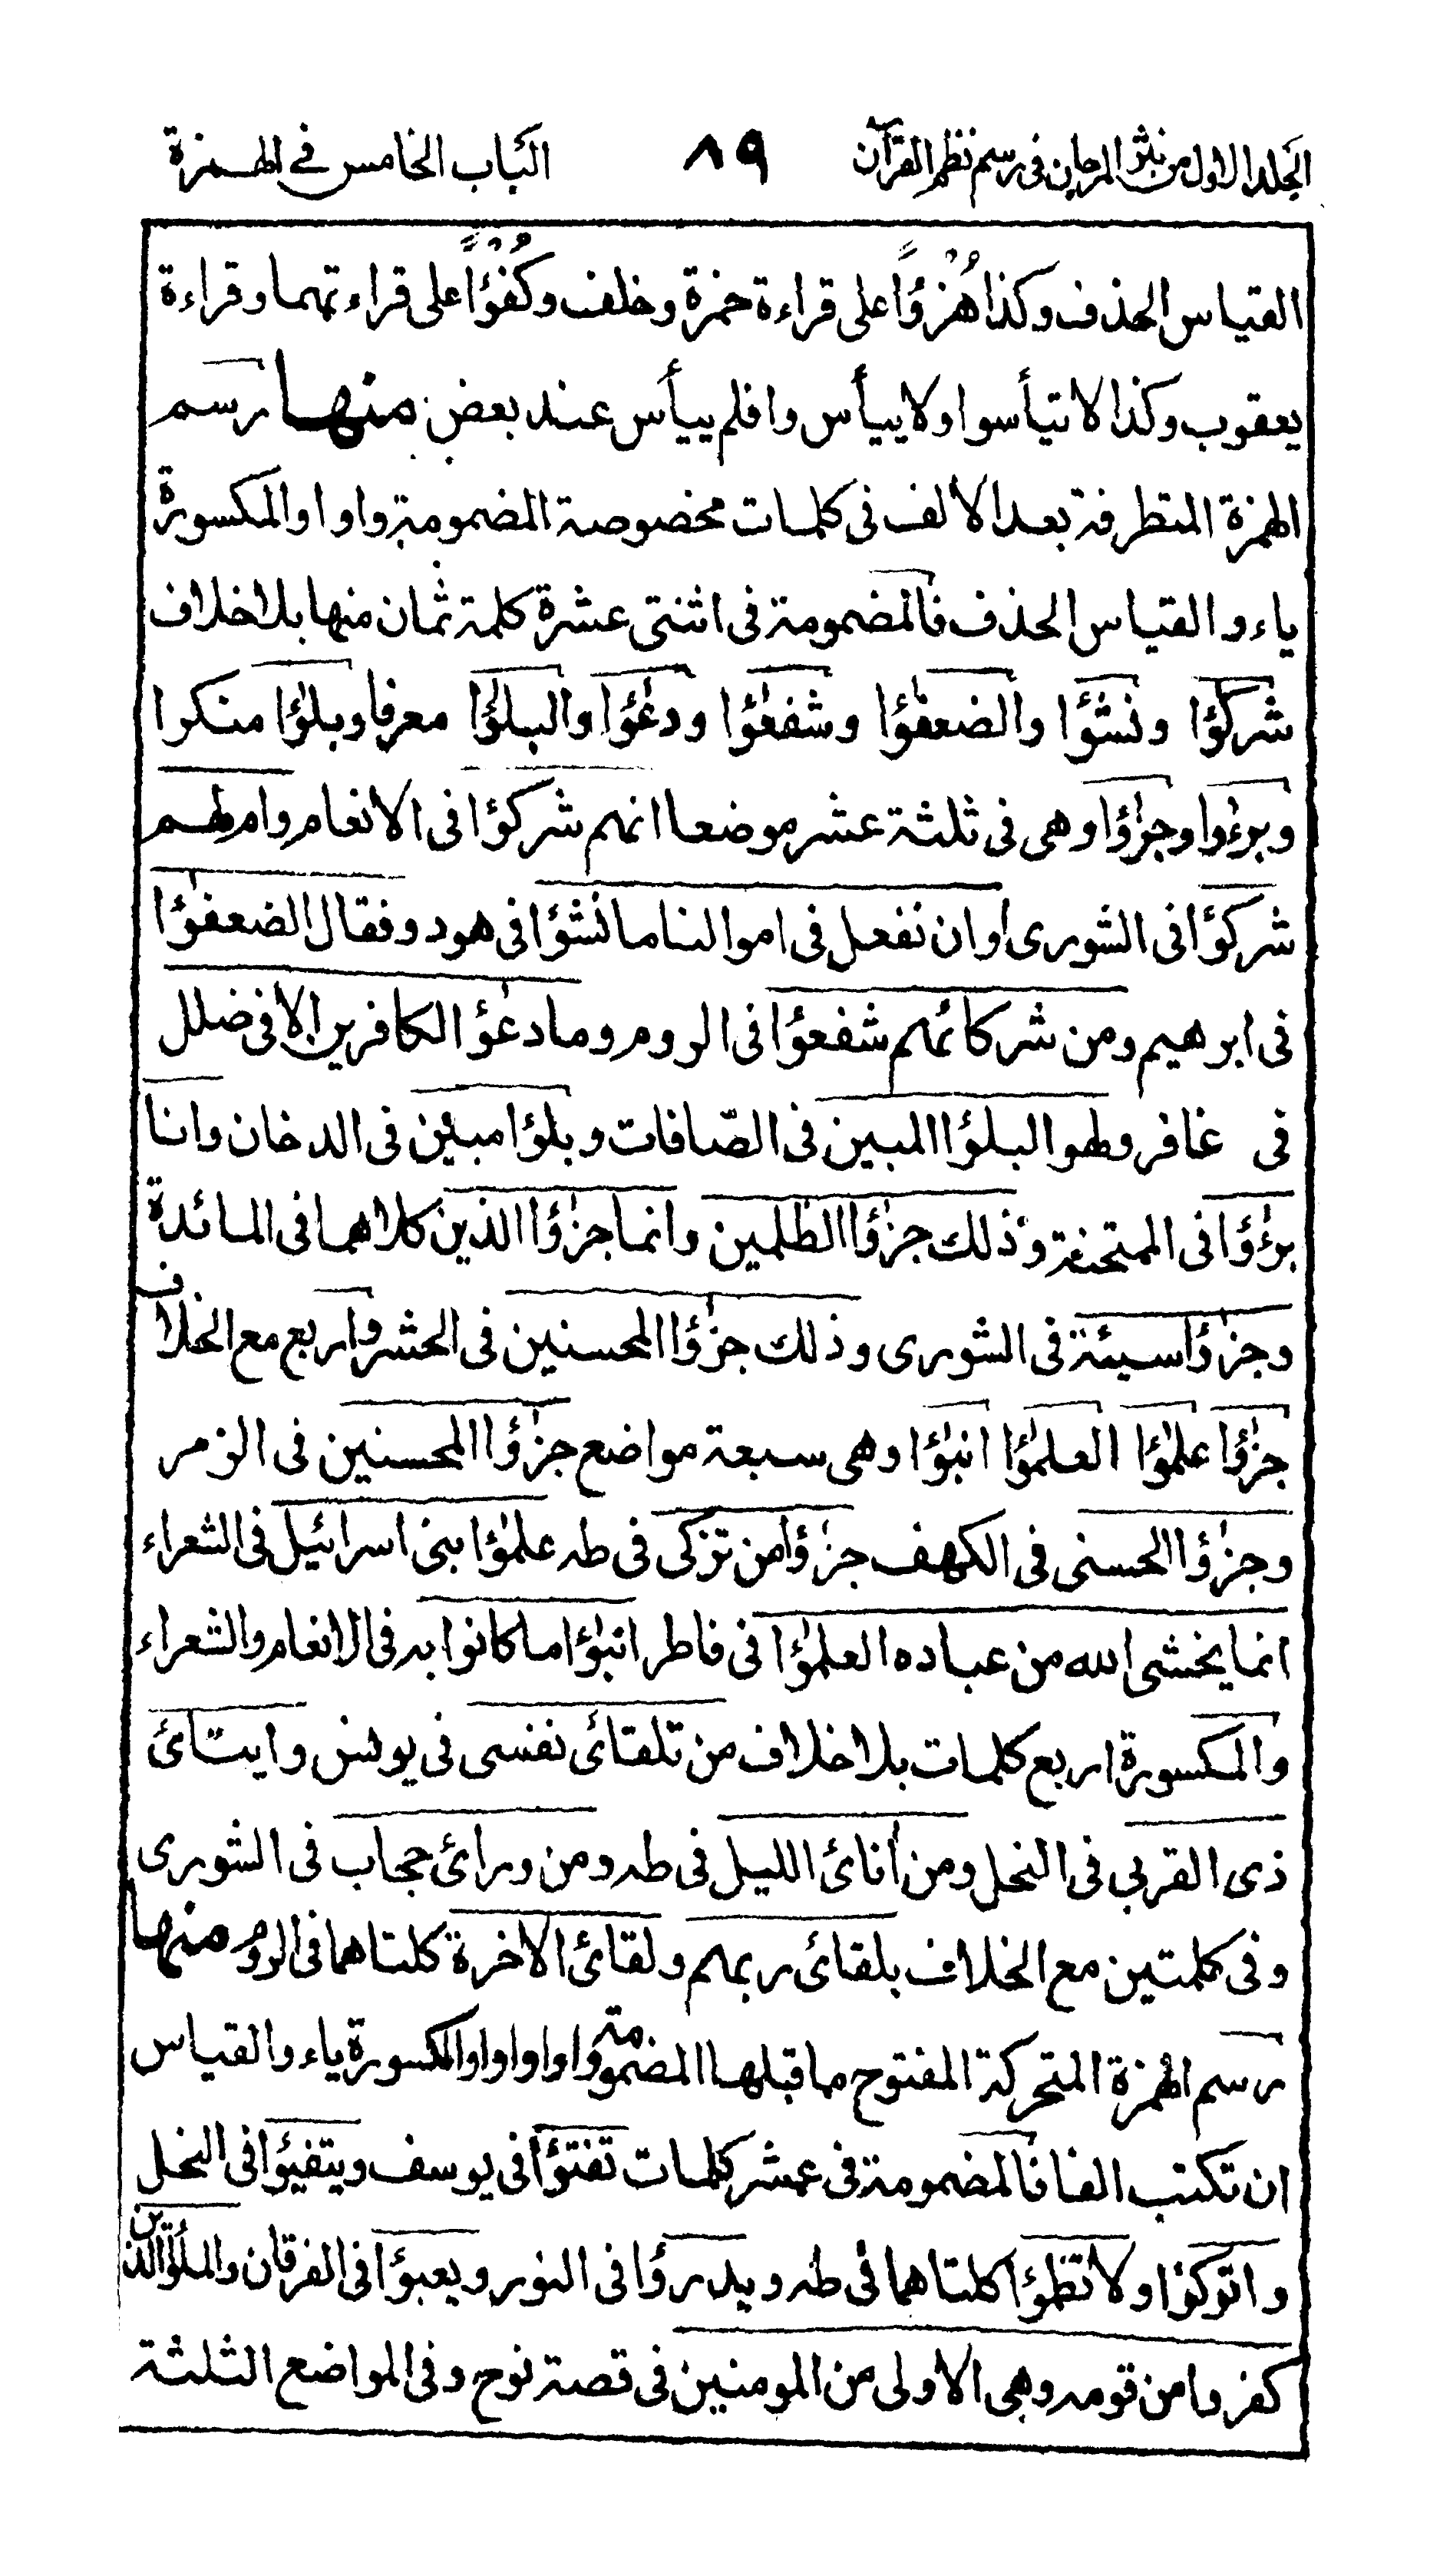 المجلد الاول من نثر المرجان فى رسم نظم القرآن ٨٩ الباب الخامس فے الهمزة
القياس الحذف وكذا هُزُؤًا على قراءة حمزة وخلف وكُفُؤًا على قراءتهما وقراءة
يعقوب وكذا لا تيأسوا ولا ييأس وافلم ييأس عند بعض منها رسم
الهمزة المتطرفة بعد الالف فى كلمات مخصوصة المضمومة واوا والمكسورة
ياء والقياس الحذف فالمضمومة فى اثنتى عشرة كلمة ثمان منها بلا خلاف
شركٰؤا ونشٰؤا والضعفٰؤا وشفعٰؤا ودعٰؤا والبلٰؤا معرفا وبلٰؤا منكرا
وبرءٰوا وجزٰؤا وهى فى ثلثة عشر موضعا انهم شركؤا فى الانعام وام لهم
شركؤا فى الشورى او ان نفعل فى اموالنا ما نشؤا فى هود وفقال الضعفٰؤا
فى ابرهيم ومن شركائهم شفعؤا فى الروم وما دعٰؤ الكافرين الا فى ضلل
فى غافر ولهو البلؤا المبين فى الصّافات وبلؤا مبين فى الدخان وانا
برءٰؤا فى الممتحنة وذلك جزٰؤا الظلمين وانما جزٰؤا الذين كلاهما فى المائدة
وجزٰؤا سيئة فى الشورى وذلك جزٰؤا المحسنين فى الحشر واربع مع الخلاف
جزٰؤا علمٰؤا العلمٰؤا انبٰؤا وهى سبعة مواضع جزٰؤا المحسنين فى الزمر
وجزٰؤا الحسنى فى الكهف جزٰؤا من تزكى فى طه علمٰؤا بنى اسرائيل فى الشعراء
انما يخشى الله من عباده العلمٰؤا فى فاطر انبٰؤا ما كانوا به فى الانعام والشعراء
والمكسورة اربع كلمات بلا خلاف من تلقائ نفسى فى يونس وايتائ
ذى القربى فى النحل ومن أنائ الليل فى طه ومن ورائ حجاب فى الشورى
وفى كلمتين مع الخلاف بلقائ ربهم ولقائ الاخرة كلتاهما فى الروم منها
رسم الهمزة المتحركة المفتوح ما قبلها المضمومة واوا واوا والمكسورة ياء والقياس
ان تكتب الفا فالمضمومة فى عشر كلمات تفتؤا فى يوسف ويتفيؤا فى النحل
واتوكؤا ولا تظمؤا كلتاهما فى طه ويدرؤا فى النور ويعبؤا فى الفرقان والملؤا الذين
كفروا من قومه وهى الاولى من المومنين فى قصة نوح وفى المواضع الثلثة